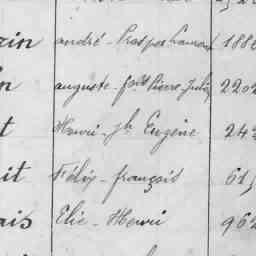 zin andré - Prosper Laurent 188
n auguste - Jph Pierre - July 2202
t Henri - Jh Eugène 243
it Félix - françois 61
ais Elie - Henri 962